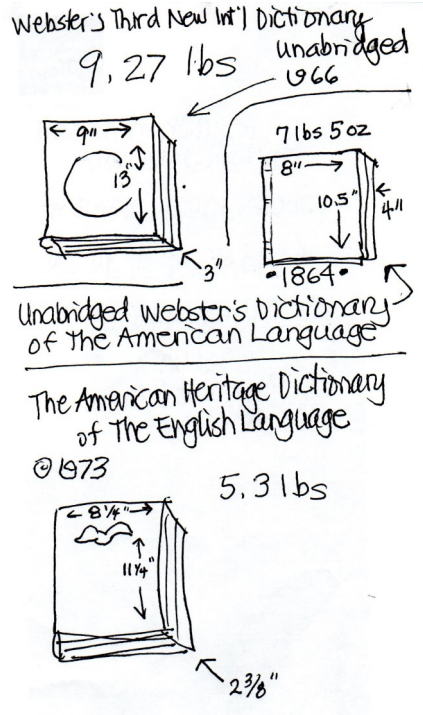 Webster's Third New Int'l Dictionary
Unabridged
1966
9.27 lbs
9"
13"
3"
7 lbs 5 oz
8"
10.5"
4"
•1864•
Unabridged Webster's Dictionary
of The American Language
The American Heritage Dictionary
of The English Language
©1973
5.3 lbs
8 1/4"
11 1/4"
2 3/8"